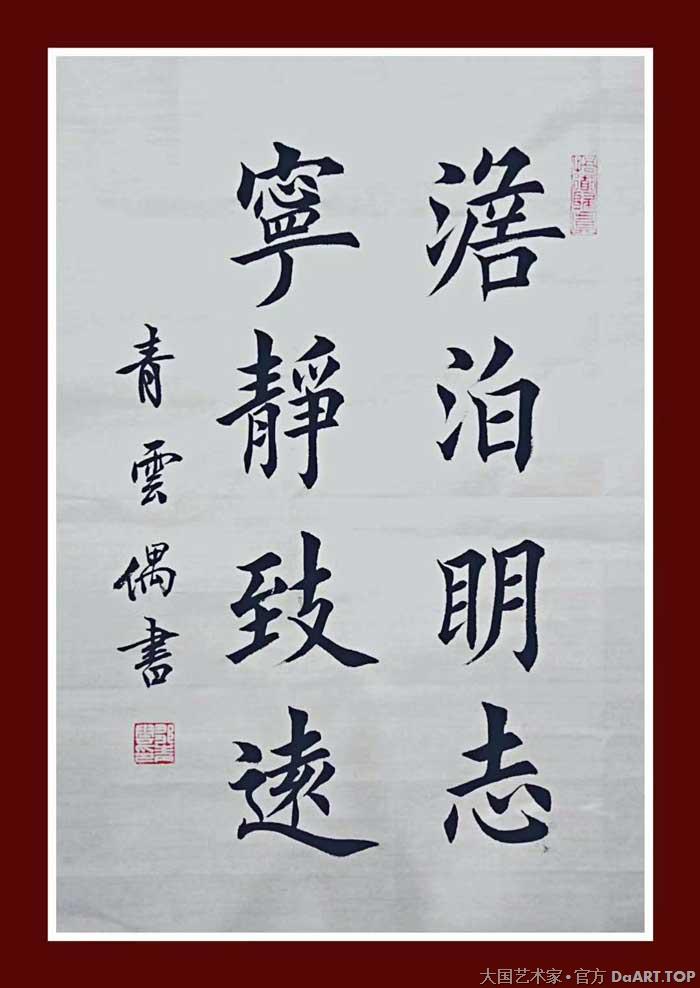 澹泊明志
寧靜致遠
青雲偶書
大国艺术家•官方 DaART.TOP